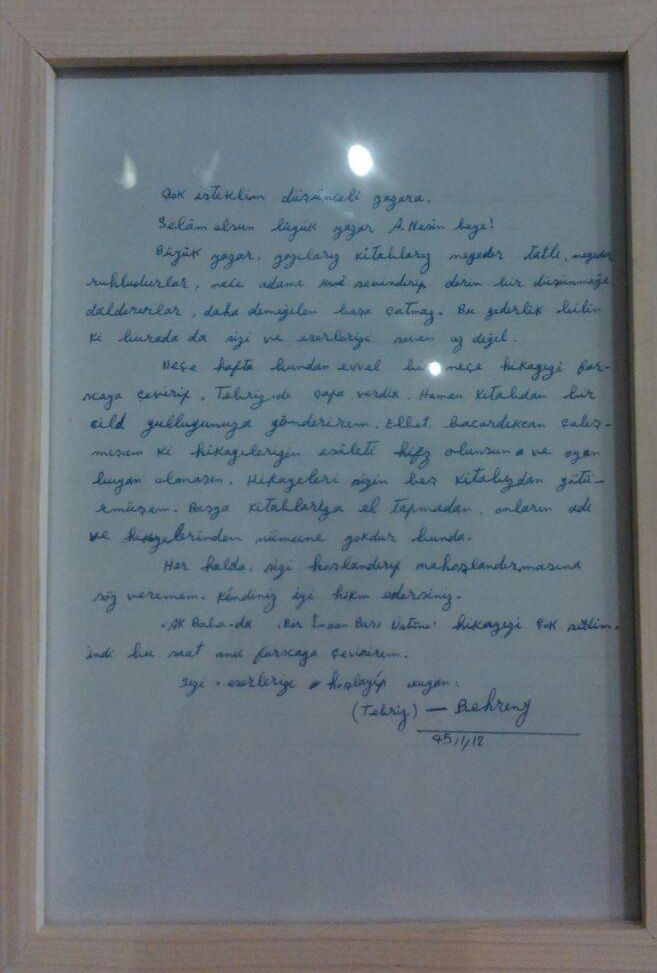 Çok isteklim düşünceli yazara.
Selâm olsun büyük yazar A. Nesin beye!
Büyük yazar, yazılarız kitablarız neqeder tatlı, neqeder
ruhludurlar, nece adamı sevindirip derin bir düşünmeğe
daldırırlar, daha demeğilen başa çatmaz. Bu qederlik bilin
ki burada da sizi ve eserlerizi seven az değil.
Neçe hafta bundan evvel bir neçe hikayezi far-
scaya çevirip, Tebriz.de çapa verdik. Haman kitabdan bir
cild qulluğunuza gönderirem. Elbet, bacardıkcan çalış-
mışam ki hikayelerizin esâleti hifz olunsun ve oyan
buyan olmasın. Hikayeleri sizin beş kitabızdan götü-
rmüşem. Başqa kitablarıza el tapmadan, onların adı
ve hikayelerinden nümune yokdur bunda.
Her halda, sizi hoşlandırıp nahoşlandırmasına
söz veremem. Kendiniz iyi hökm edersiniz.
"Ak Baba"da "Bir İnsan Başı Üstüne" hikayezi çok sevdim,
indi bu saat onu farscaya çevirirem.
Sizi, eserlerizi hoşlayıp oxuyan:
(Tebriz) — Behreng
45/1/12